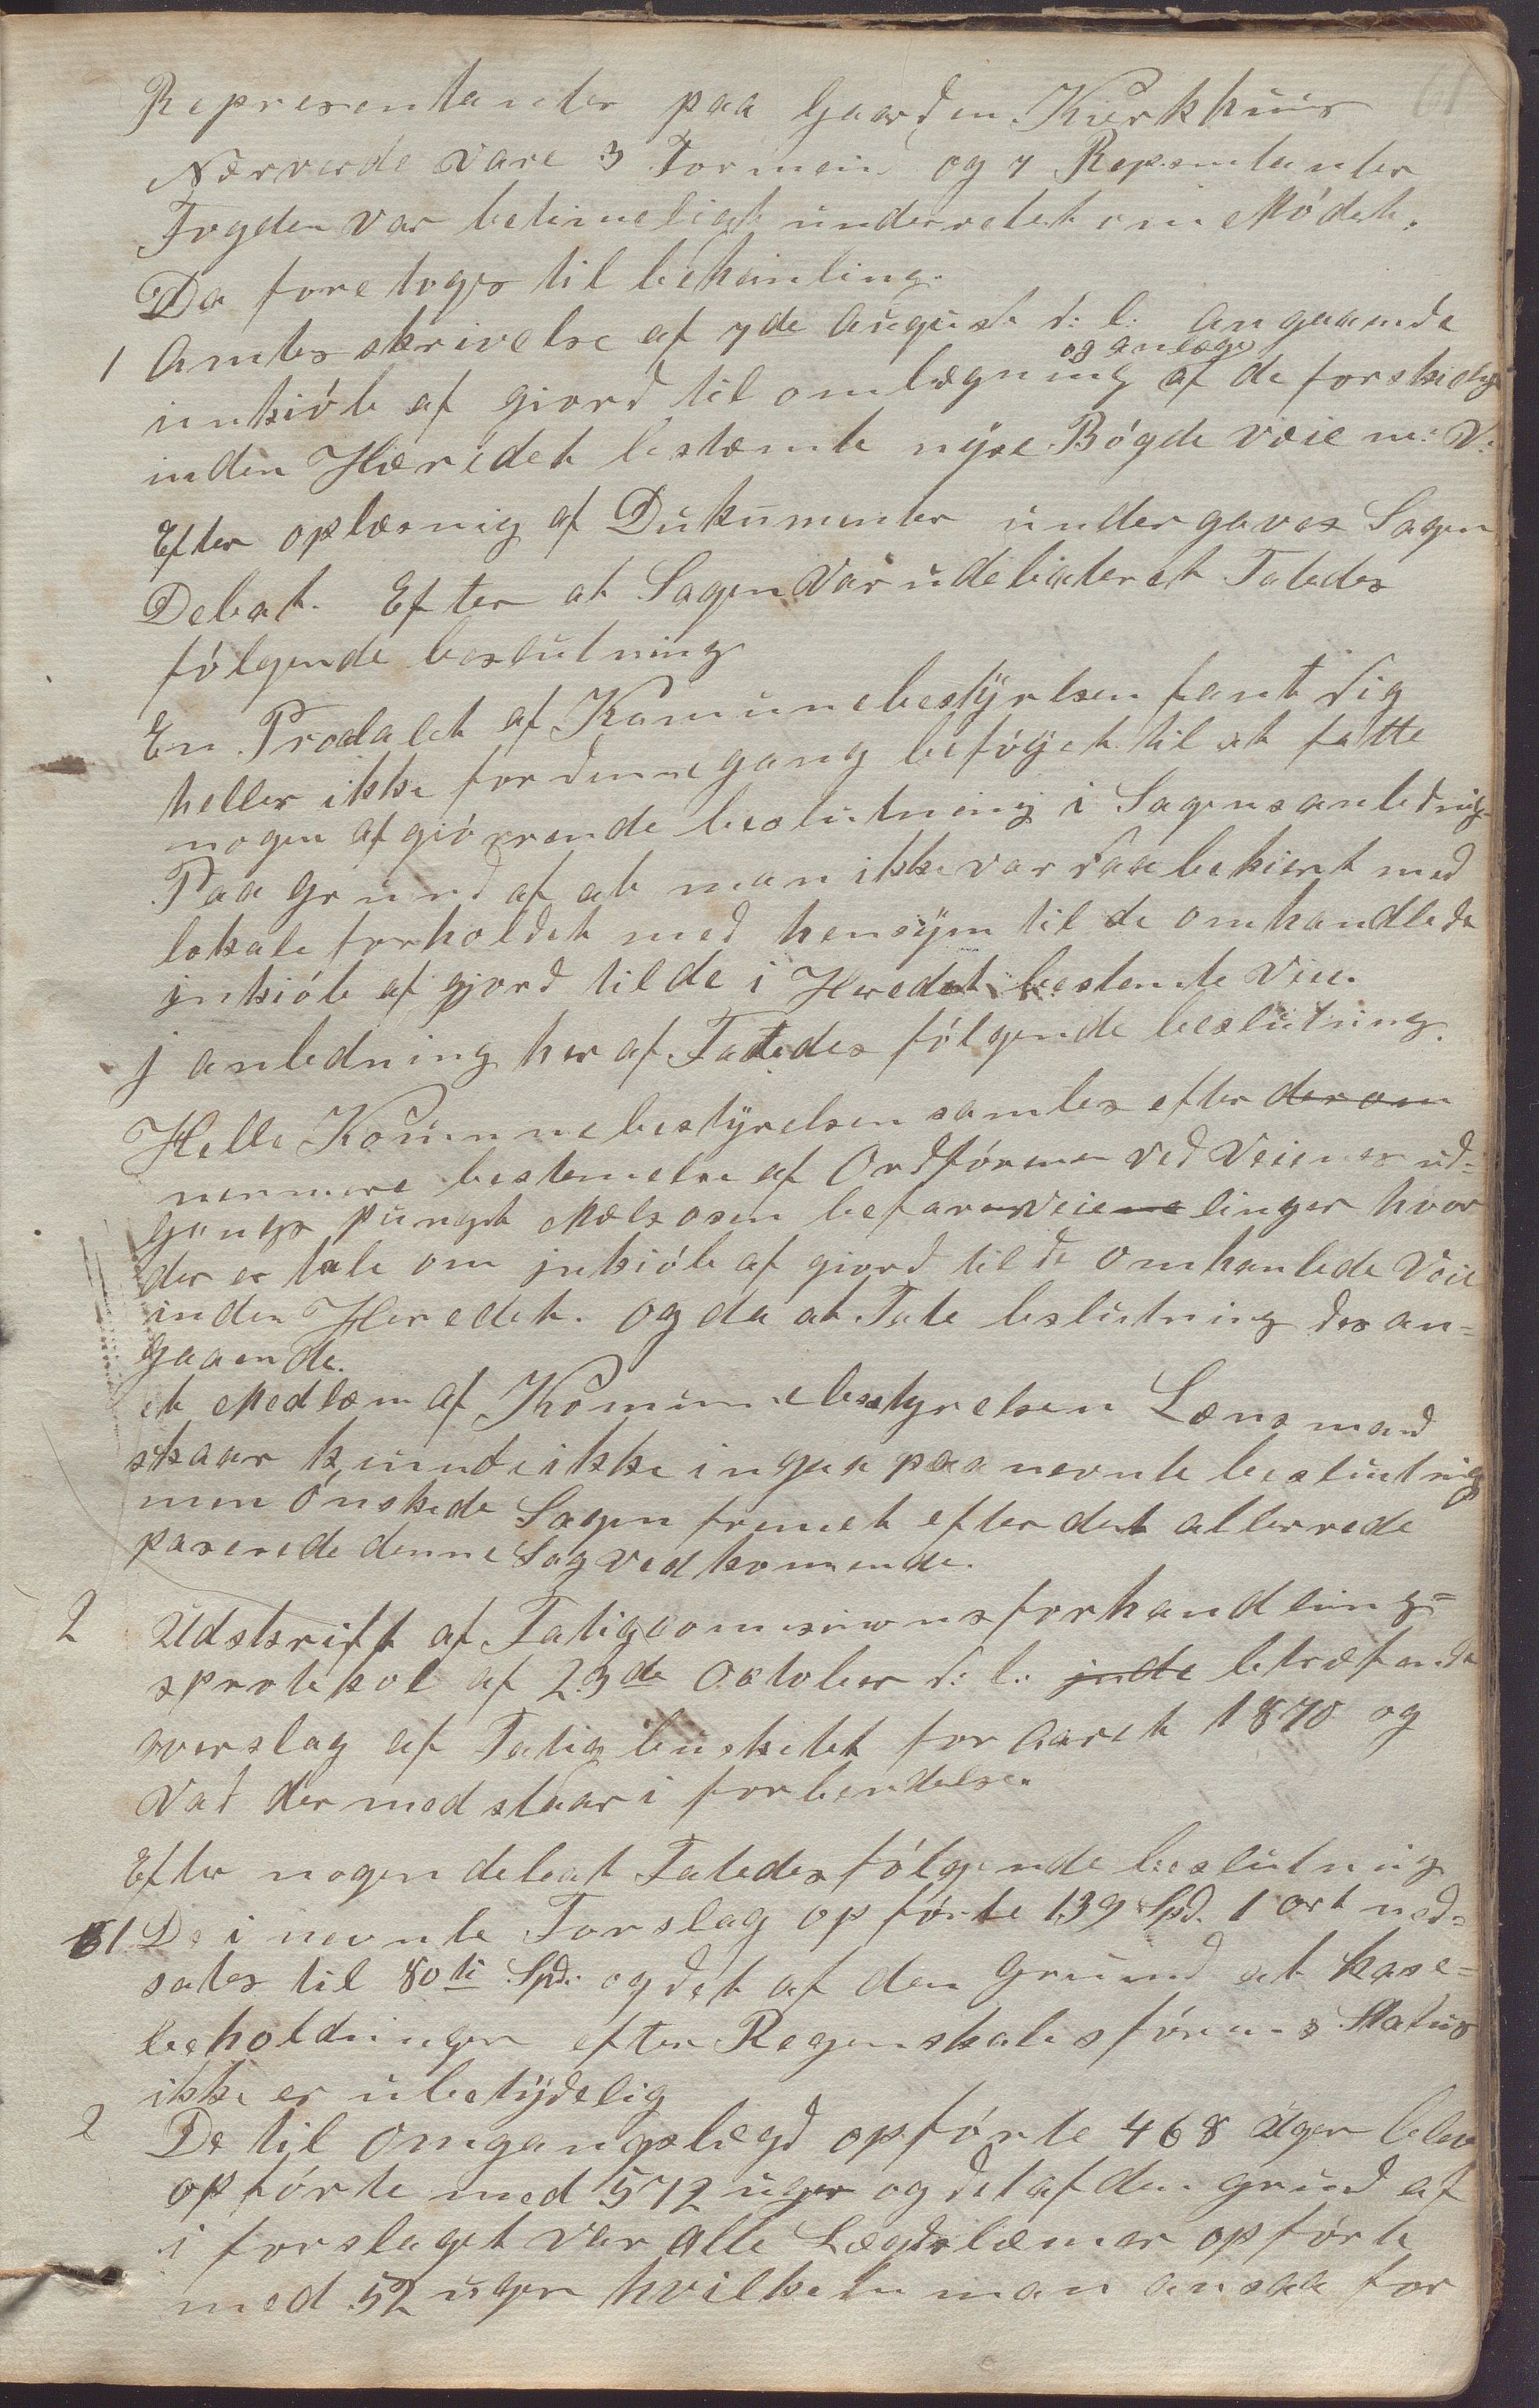 Representanter paa Gaarden Kirkhuus
Nærverde vare 3 Formein og 7 Represntanter
Fogden var betimeligt underretet om Mødet.
Da foretoges til behanling.
1 Amtes skrivelse af 7de August d: l: angaaende
og anlægs
inkiøb af giord til omlægning af de forskielig
inden Hæredet bestæmte nyye Bøgde veie m: V:
Efter oplæsnig af Dukumenter undergaves Sagen
Debat. Efter at Sagen var udebateret Fatedes
følgende beslutning
En Prodalet af Komunebestyrelsen fant sig
heller ikke fordenne gang beføyet til at fatte
nogen afgiørende beslutning i Sagens anledning
Paa grund af at man ikke var saa bekient med
lokale forholdet med hensyn til de omhandlede
jnkiøb af gjord til de i Heredet bestemte Veie.
j anledning her af Fatedes følgende beslutning.
Helle Komunebestyrelsen samles efter der om
nermere bestemelse af Ordføren ved Veienes ud=
gangs pungt Mælsosen befare veiene linger hvor
der er tale om jnkiøb af giord til de omhanlede Veie
inden Heredet. og da at Fate beslutning des an=
gaaende.
et Medlem af Komunebestyrelsen Lænsmand
skaar kunde ikke ingaa paa nevnte beslutnig
men ønskede Sagen fremet efter det allerrede
paserede denne Sag vedkomende.
2 Udskrift af Fatigcomisionsforhandling=
sprotokol af 23de Oktober d: l: jnde betræfende
overslag af Fatig buskitet for Aaret 1870 og
Vad der med staar i forbendelse.
Efter nogen debat Fatedes følgende beslutnig
1 De i nevnte Forslag opførte 139 Spd. 1 ort ned=
sates til 80ti Spd: og det af den Grund at kase=
beholdningen efter Regenskabsførens Status
ikke er ubetydelig
2 De til omgangslægd opførte 468 uger blev
opførte med 572 uger og det af den grund af
i forslaget var alle Lægdslæmer opførte
med 52 uger hvilket man ansaa for